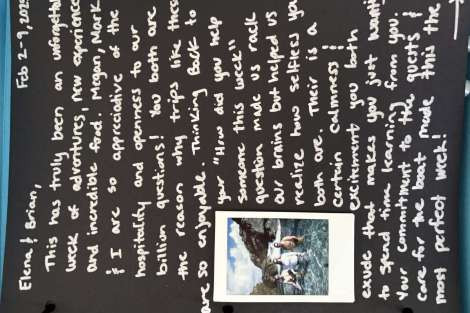 Feb 2-9, 2025
Elena & Brian,
This has truly been an unforgettable
week of adventures, new experiences
and incredible food. Megan, Mark
& I are so appreciative of the
hospitality and openness to our
billion questions! You both are
the reason why trips like these
are so enjoyable. Thinking back to
your "How did you help
someone this week"
question made us rack
our brains but helped us
realize how selfless you
both are. Their is a
certain calmness &
excitement you both
exude that makes you just want
to spend time learning from you.
Your commitment to the guests &
care for the boat made this the
most perfect week!